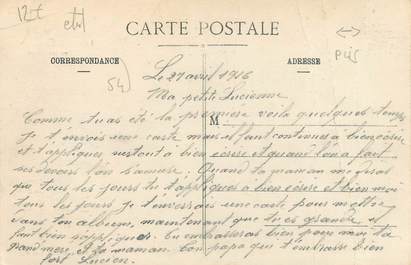 12t
etit
plis
54
CARTE POSTALE
CORRESPONDANCE
ADRESSE
M
Le 27 avril 1916
Ma petite Lucienne
Comme tu as été la première voila quelques temps
je t'envois une carte mais il faut continuer à bien écrire
et t'appliquer surtout à bien écrire et quand l'on a fait
ses devoirs l'on s'amuse. Quand ta maman me diras
que tous les jours tu t'appliques à bien écrire et bien moi
tous les jours je t'enverrai une carte pour mettre
dans ton album, maintenant que tu es grande il
faut bien t'appliquer. Tu embrasseras bien pour moi ta
grand mère, et ta maman. Ton papa qui t'embrasse bien
fort Lucien